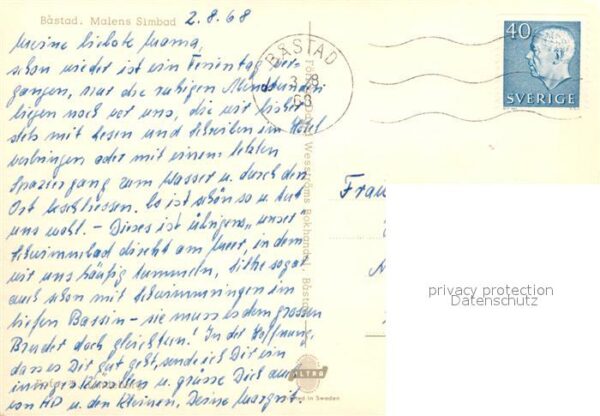 Båstad. Malens Simbad
2.8.68
Meine liebste Mama,
schon wieder ist ein Ferientag ver-
gangen, nur die ruhigen Abendstunden
liegen noch vor uns, die wir bisher
stets mit Lesen und Schreiben im Hotel
verbringen oder mit einem letzten
Spaziergang zum Wasser u. durch den
Ort beschliessen. Es ist schön so u. tut
uns wohl. - Dieses ist übrigens "unser"
Schwimmbad direkt am Meer, in dem
wir uns häufig tummeln, Silke sogar
auch schon mit Schwimmringen im
tiefen Bassin - sie muss es dem grossen
Bruder doch gleichtun! In der Hoffnung,
dass es Dir gut geht, sende ich Dir ein
inniges Küsschen u. grüsse Dich auch
von HP u. den Kleinen, Deine Margrit.
BÅSTAD
3 8
68
40
SVERIGE
Wesströms Bokhandel, Båstad
Frau
privacy protection
Datenschutz
ULTRA
in Sweden